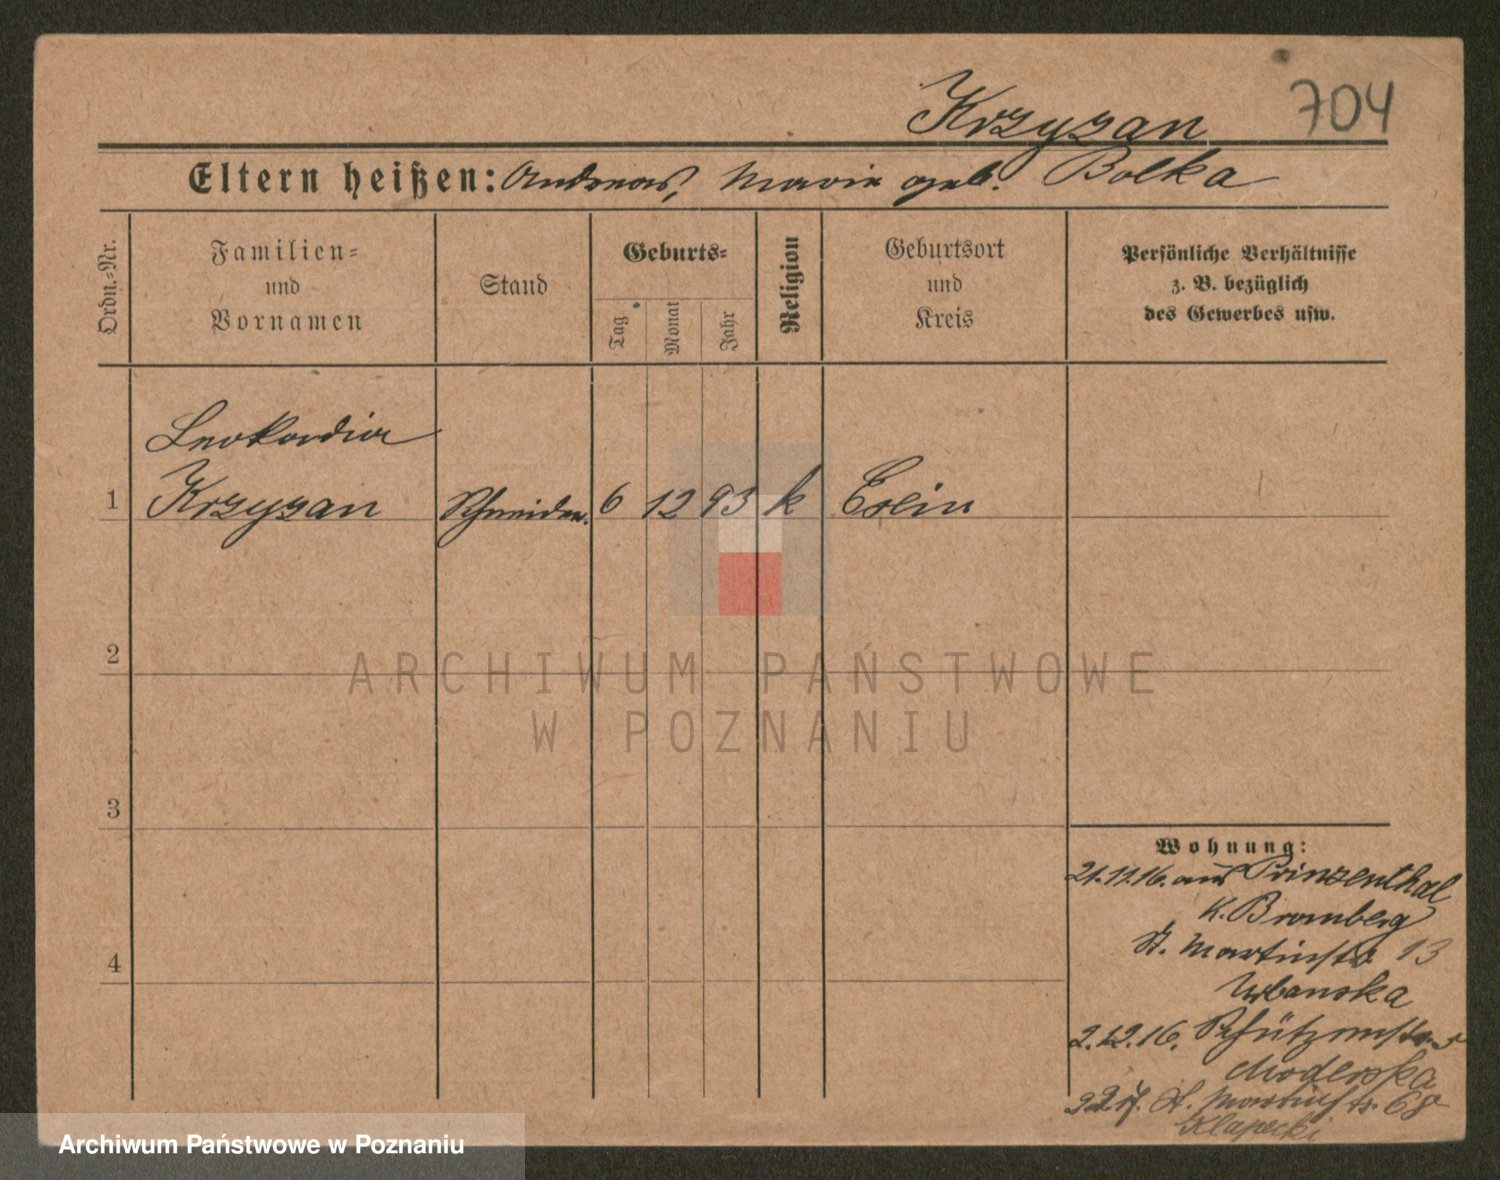 Krzyzan 704
Eltern heißen: Andreas, Marie geb. Bolka
Ordn.-Nr.
Familien-
und
Vornamen
Stand
Geburts-
Tag
Monat
Jahr
Religion
Geburtsort
und
Kreis
Persönliche Verhältnisse
z. B. bezüglich
des Gewerbes usw.
Leokardia
1 Krzyzan Schneider. 6 12 93 k
2
3
4
Wohnung:
21.11.16. aus Prinzenthal
K. Bromberg
St. Martinstr. 13
Urbanska
2.12.16. Schützenstr.
Moderska
St. Martinstr. 68
Klapecki
ARCHIWUM PAŃSTWOWE
W POZNANIU
Archiwum Państwowe w Poznaniu